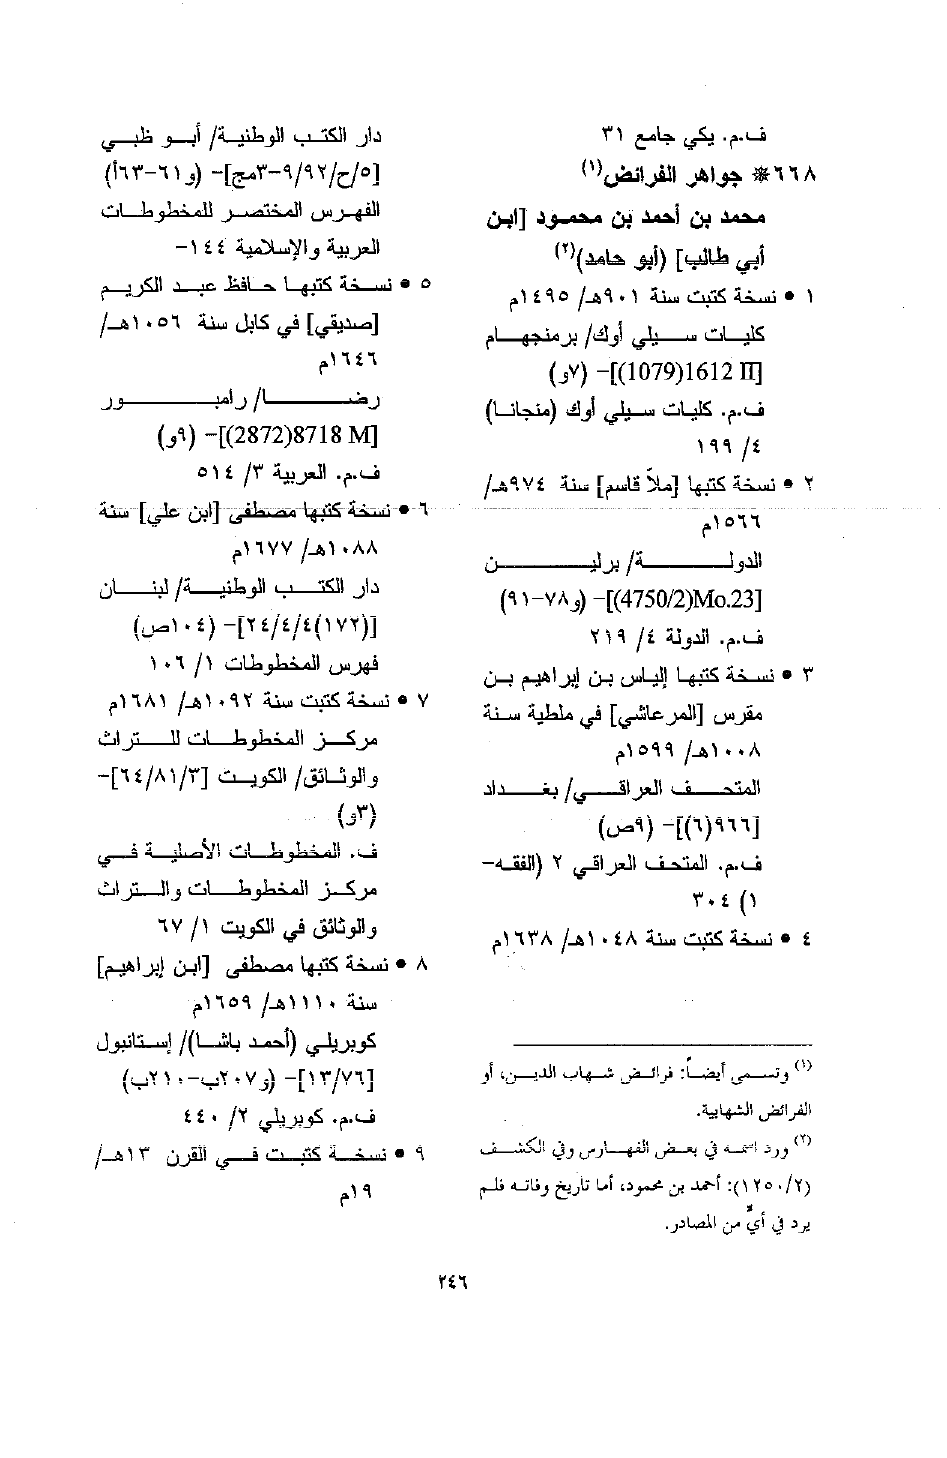 ف.م. يكي جامع ٣١
٦٦٨* جواهر الفرائض(١)
محمد بن أحمد بن محمود [ابن
أبي طالب] (أبو حامد)(٢)
١ • نسخة كتبت سنة ٩٠١هـ/ ١٤٩٥م
كليات سيلي أوك/ برمنجهام
[1079)1612 II)]- (٧و)
ف.م. كليات سيلي أوك (منجانا)
٤/ ١٩٩
٢ • نسخة كتبها [ملاّ قاسم] سنة ٩٧٤هـ/
١٥٦٦م
الدولة/ برلين
[4750/2)Mo.23)]- (و٧٨-٩١)
ف.م. الدولة ٤/ ٢١٩
٣ • نسخة كتبها إلياس بن إبراهيم بن
مقرس [المرعاشي] في ملطية سنة
١٠٠٨هـ/ ١٥٩٩م
المتحف العراقي/ بغداد
[٩٦٦(٦)]- (٩ص)
ف.م. المتحف العراقي ٢ (الفقه-
١) ٣٠٤
٤ • نسخة كتبت سنة ١٠٤٨هـ/ ١٦٣٨م
(١) وتسمى أيضاً: فرائض شهاب الدين، أو
الفرائض الشهابية.
(٢) ورد اسمه في بعض الفهارس وفي الكشف
(١٢٥٠/٢): أحمد بن محمود، أما تاريخ وفاته فلم
يرد في أيٍّ من المصادر.
دار الكتب الوطنية/ أبو ظبي
[٥/ح/٩/٩٢-٣مج]- (و٦١-٦٣أ)
الفهرس المختصر للمخطوطات
العربية والإسلامية ١٤٤-
٥ • نسخة كتبها حافظ عبد الكريم
[صديقي] في كابل سنة ١٠٥٦هـ/
١٦٤٦م
رضا/ رامبور
[2872)8718 M)]- (٩و)
ف.م. العربية ٣/ ٥١٤
٦ • نسخة كتبها مصطفى [ابن علي] سنة
١٠٨٨هـ/ ١٦٧٧م
دار الكتب الوطنية/ لبنان
[(١٧٢)٢٤/٤/٤]- (١٠٤ص)
فهرس المخطوطات ١/ ١٠٦
٧ • نسخة كتبت سنة ١٠٩٢هـ/ ١٦٨١م
مركز المخطوطات للتراث
والوثائق/ الكويت [٦٤/٨١/٣]-
(٣و)
ف. المخطوطات الأصلية في
مركز المخطوطات والتراث
والوثائق في الكويت ١/ ٦٧
٨ • نسخة كتبها مصطفى [ابن إبراهيم]
سنة ١١١٠هـ/ ١٦٥٩م
كوبريلي (أحمد باشا)/ إستانبول
[١٣/٧٦]- (و٢٠٧ب-٢١٠ب)
ف.م. كوبريلي ٢/ ٤٤٠
٩ • نسخة كتبت في القرن ١٣هـ/
١٩م
٢٤٦